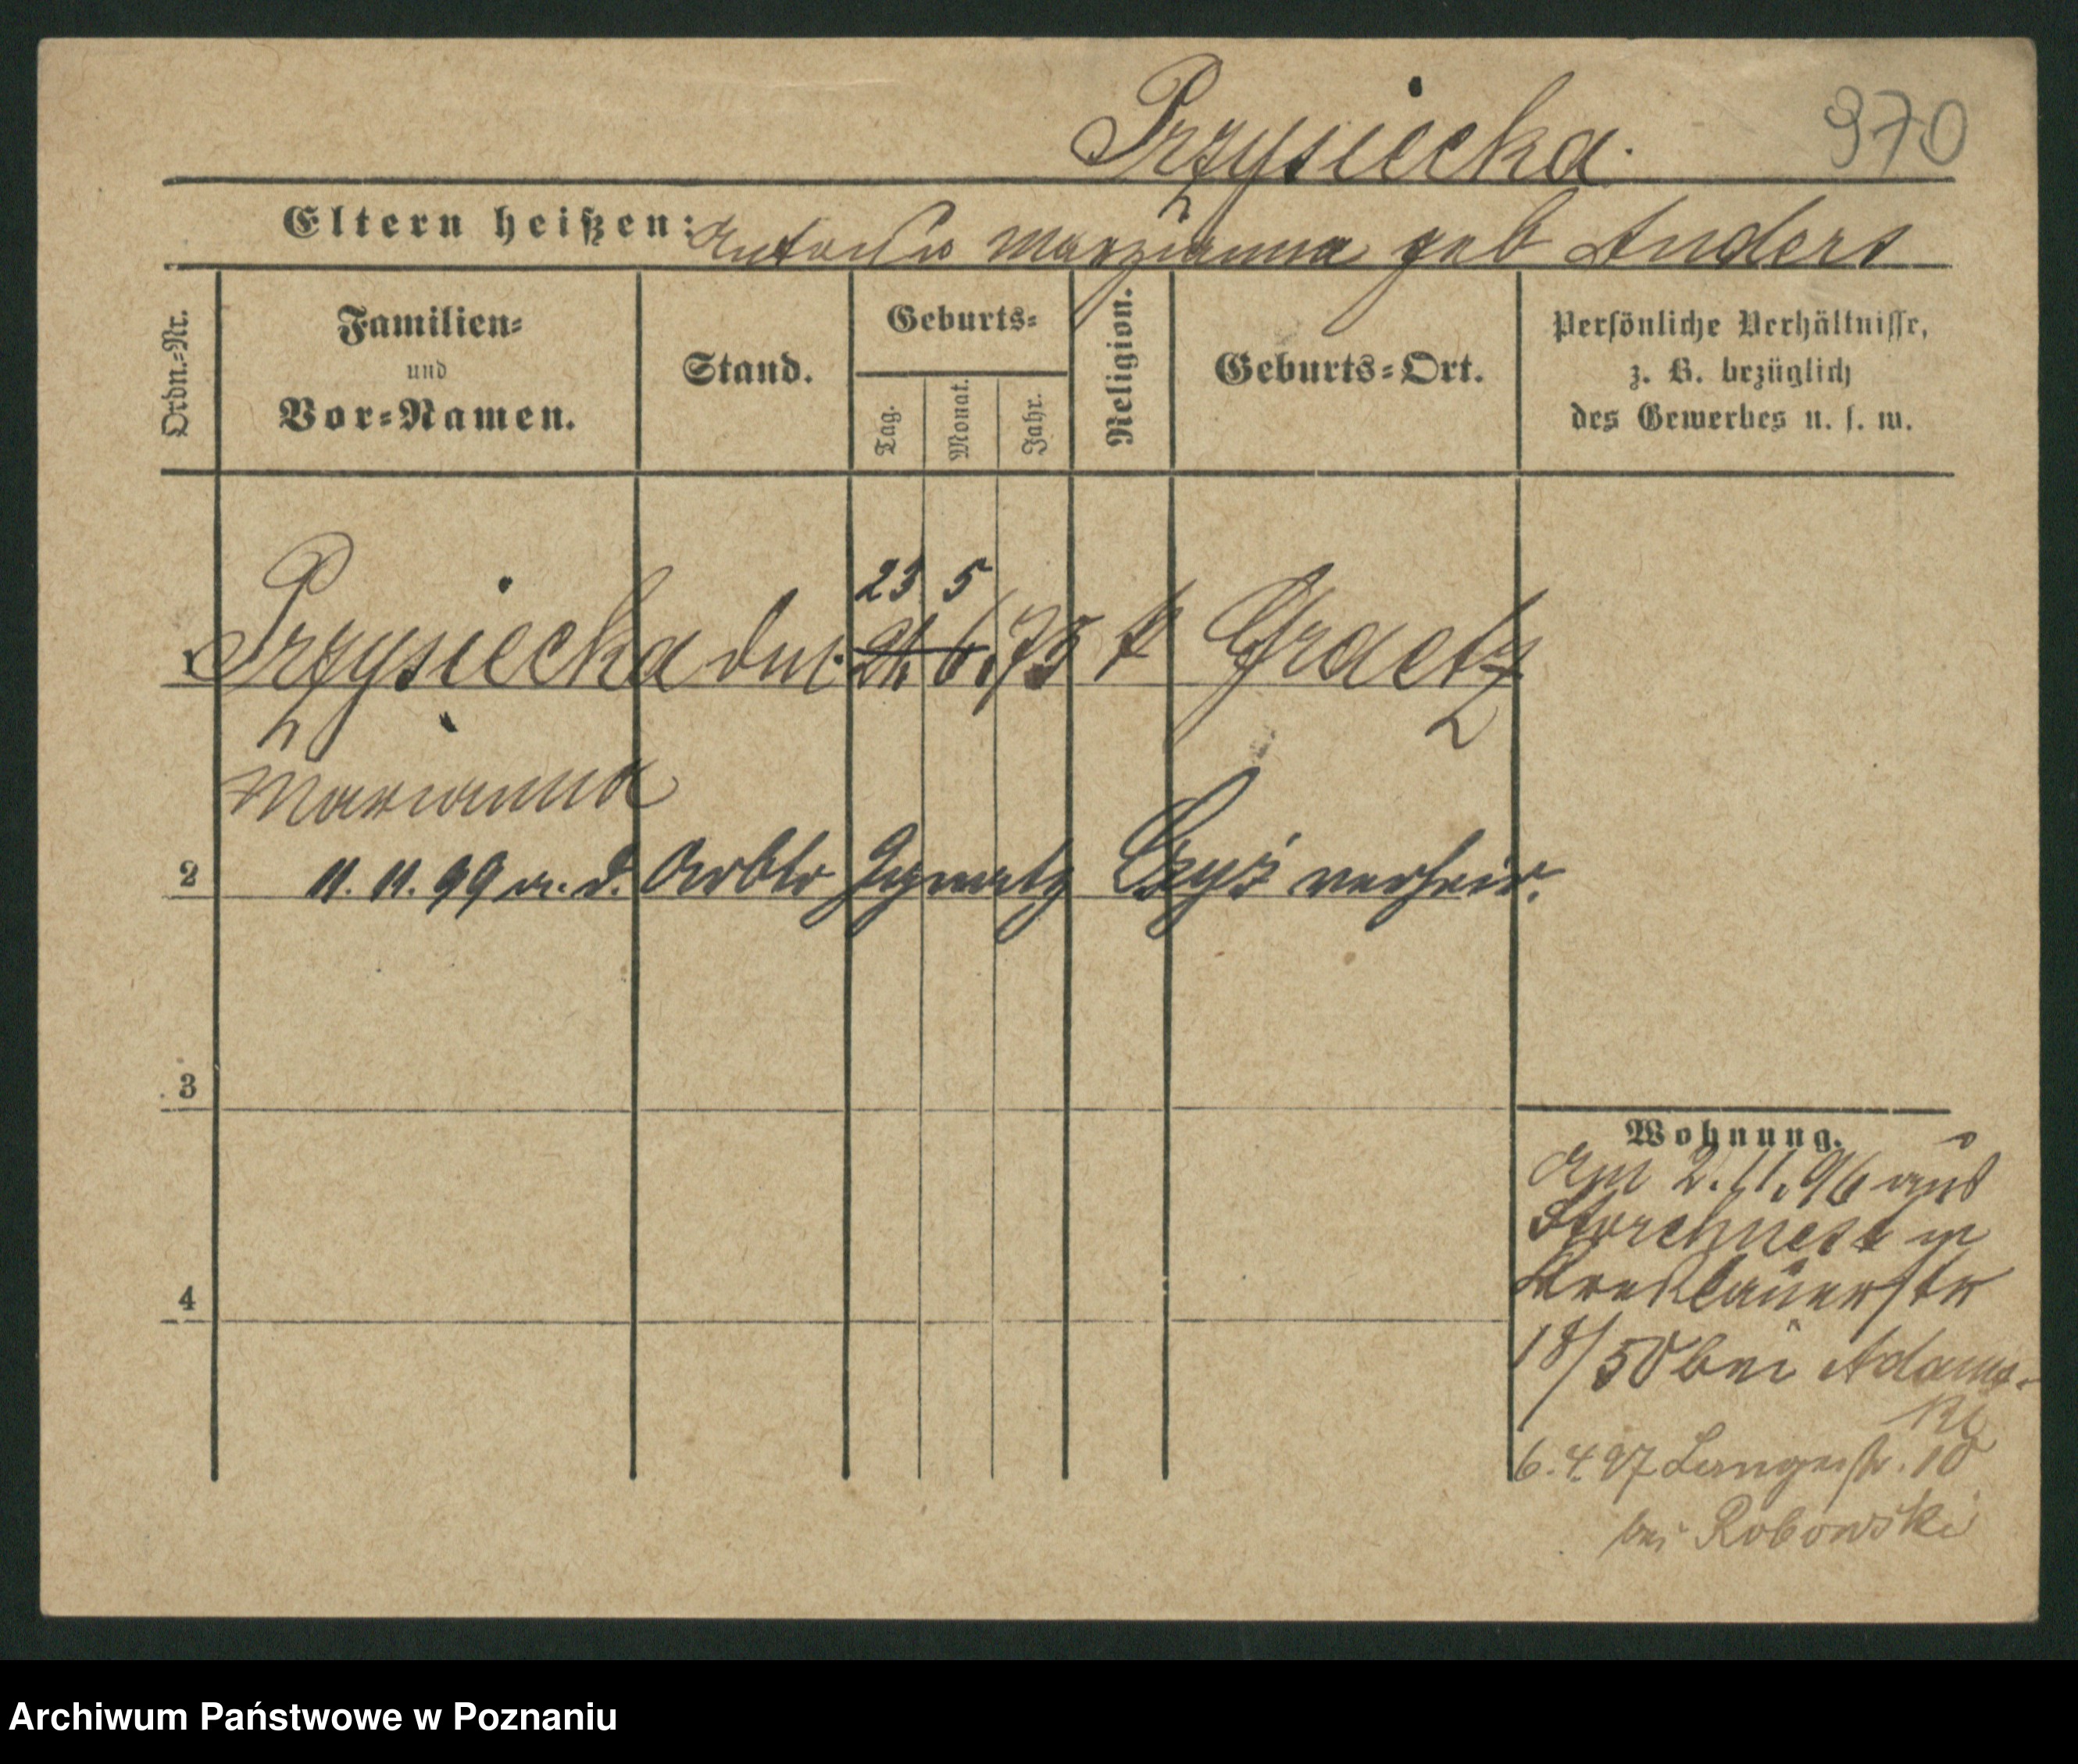 Przysiecka.
970
Eltern heißen: Marzianna geb Anders
Ordn.-Nr.
Familien-
und
Vor-Namen.
Stand.
Geburts-
Tag.
Monat.
Jahr.
Religion.
Geburts-Ort.
Persönliche Verhältnisse,
z. B. bezüglich
des Gewerbes u. s. w.
23 5
1 Przysiecka 75 k Graetz
Marianna
2 11. 11. 99 m. d. Arbtr Ignatz Czyż verheir.
3
4
Wohnung.
Am 2. 11. 96 aus
Storchnest in
Breslauerstr
18/50 bei Adams-
ki
6. 4. 97 Langestr. 10
bei Robowski
Archiwum Państwowe w Poznaniu